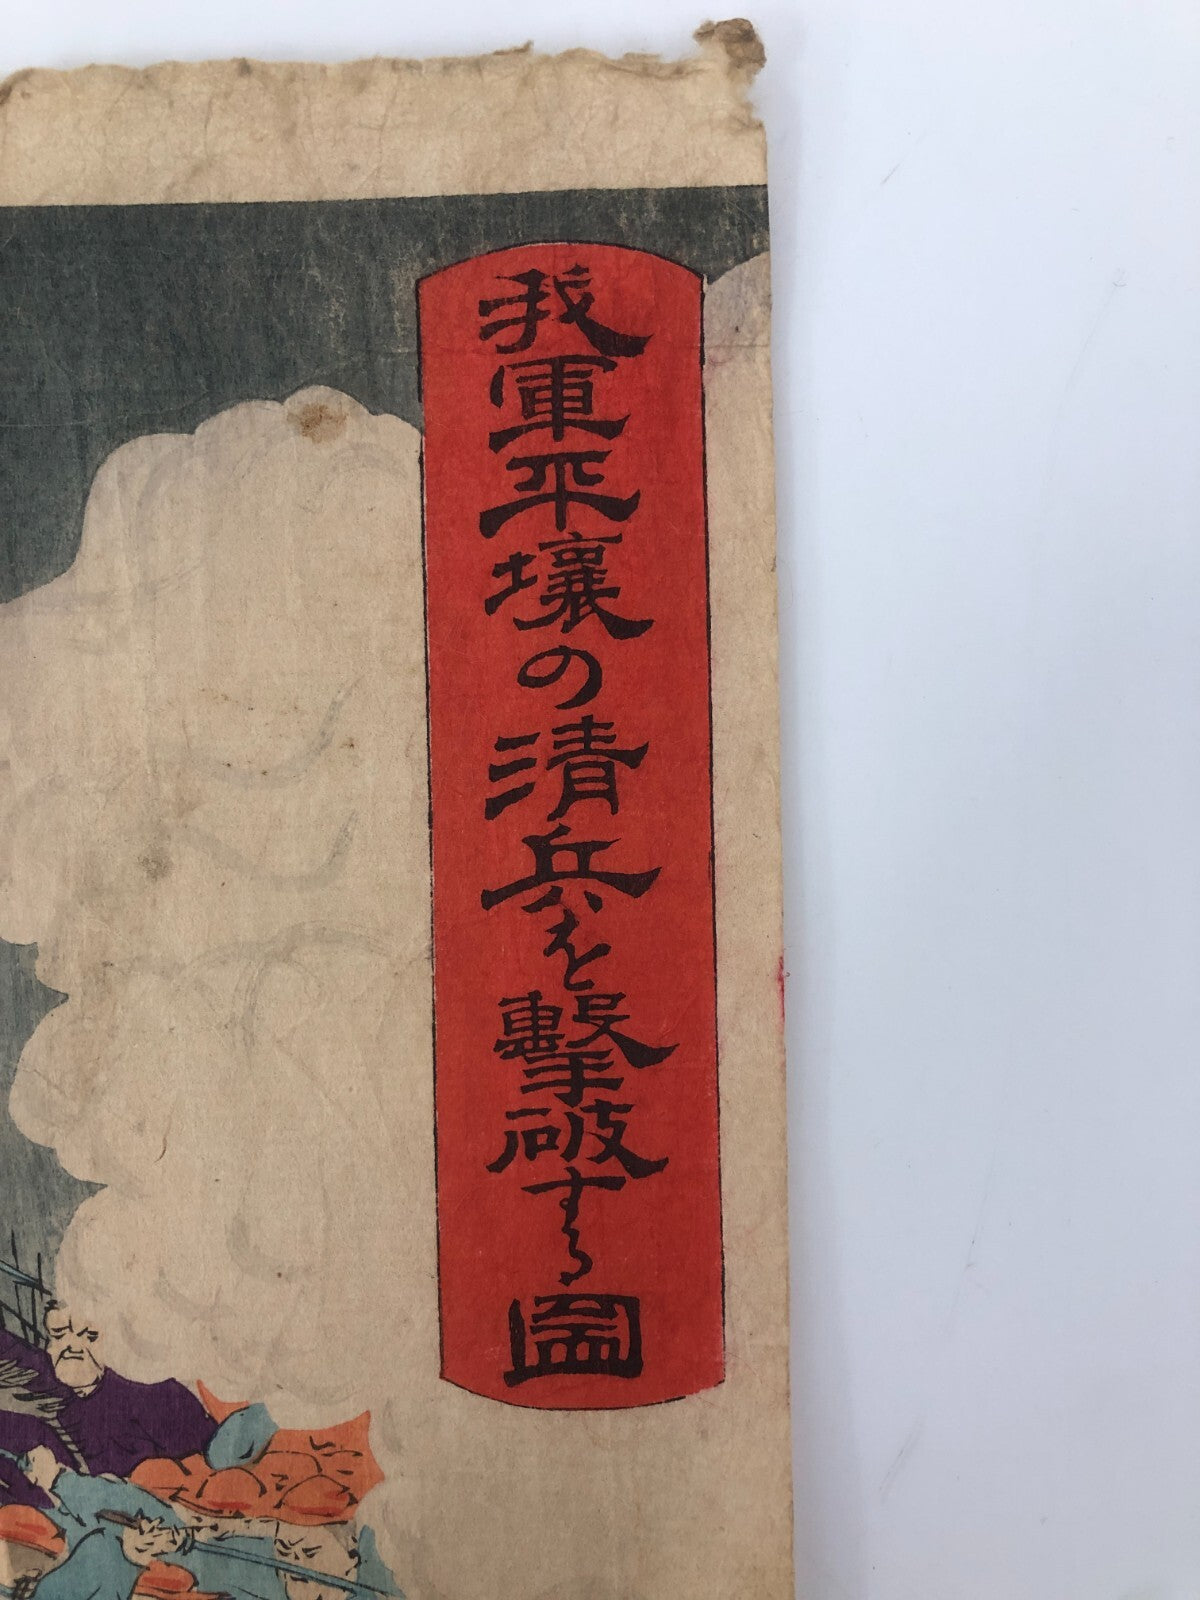 我軍平壤の清兵を撃破する圖